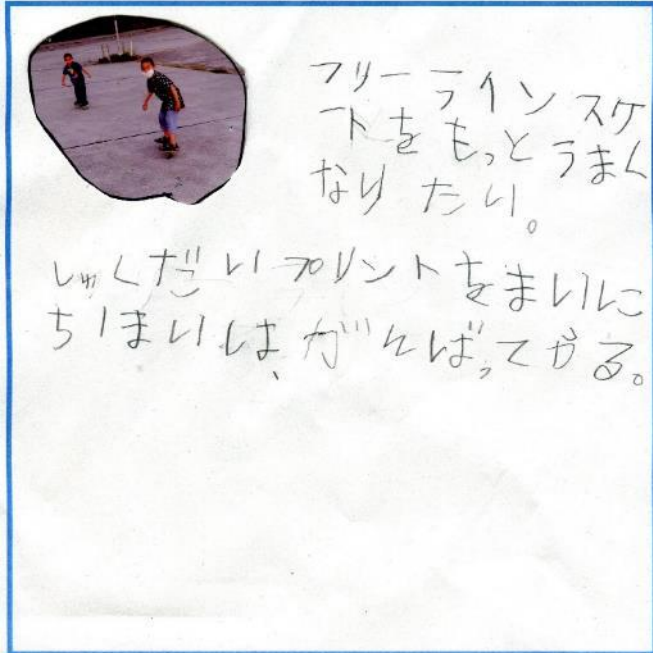 フリーラインスケ
トをもっとうまく
なりたい。
しゅくだいプリントをまいに
ち1まいは、がんばってやる。